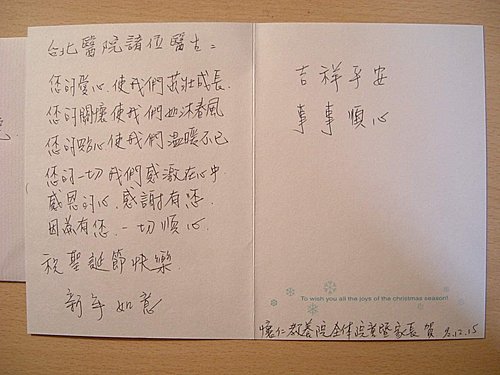 台北醫院諸位醫生：
您的愛心.使我們茁壯成長.
您的關懷使我們如沐春風
您的點心使我們溫暖不已
您的一切我們感激在心中
感恩的心.感謝有您.
因為有您.一切順心.
祝聖誕節快樂.
新年如意
吉祥平安
事事順心
To wish you all the joys of the christmas season!
懷仁教養院全体院童暨家長 賀